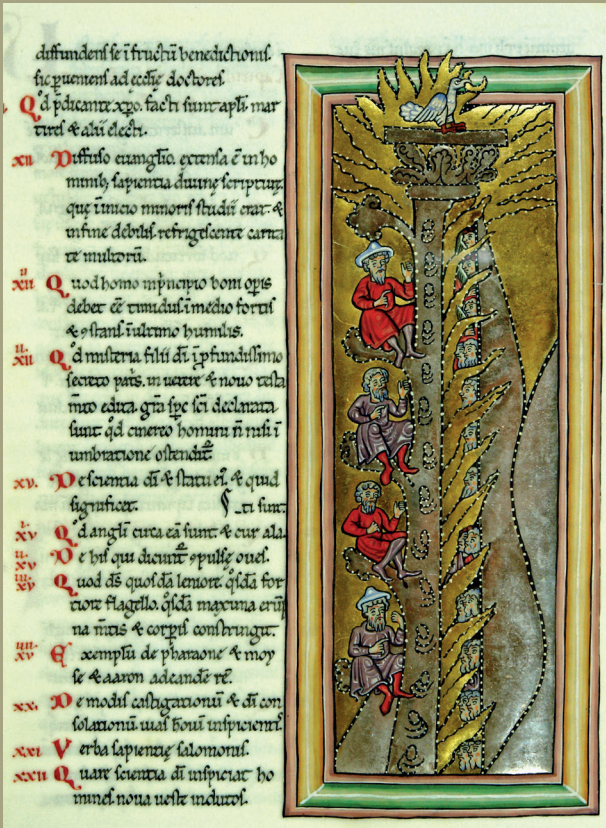 diffundens se ī fructū benedictionis
sic ꝑueniens ad ecclīe doctores.
Qđ p̄dicante xp̄o. facti sunt apl̄i. mar
tires & alii electi.
xii Diffuso euangl̄io. extensa ē in ho
minib; sapientia diuinę scripturę.
quę ī inicio minoris studii erat. &
in fine debilis. refrigescente carita
te multorū.
xii Quod homo in p̄ncipio boni oꝑis
debet eē timidus. ī medio fortis
& ꝯstans. ī ultimo humilis.
xii Qđ misteria filii dī ī ꝓfundissimo
secreto patis. in uetere & nouo testa
m̄to edita. gr̄a sp̄c sc̄i declarata
sunt. qđ cinereo homini n̄ nisi ī
umbratione ostendit̄.
xv. De scientia dī & statu ei. & quid
significet. ti sunt.
xv Qđ angl̄i circa eā sunt. & cur ala
xv De his qui dicunt̄ ꝯpulsę oues.
xv Quod dn̄s quosdā leniore. qͦsdā for
tiore flagello. qͦsdā maxima erūp
na m̄tis & corꝑis constringit.
xv Exemplū de pharaone & moy
se & aaron ad eandē rē.
xx. De modis castigationū & dī con
solationū. uias hoīum inspicientis.
xxi Verba sapientię salomonis.
xxii Quare scientia dī inspiciat ho
mines noua ueste indutos.